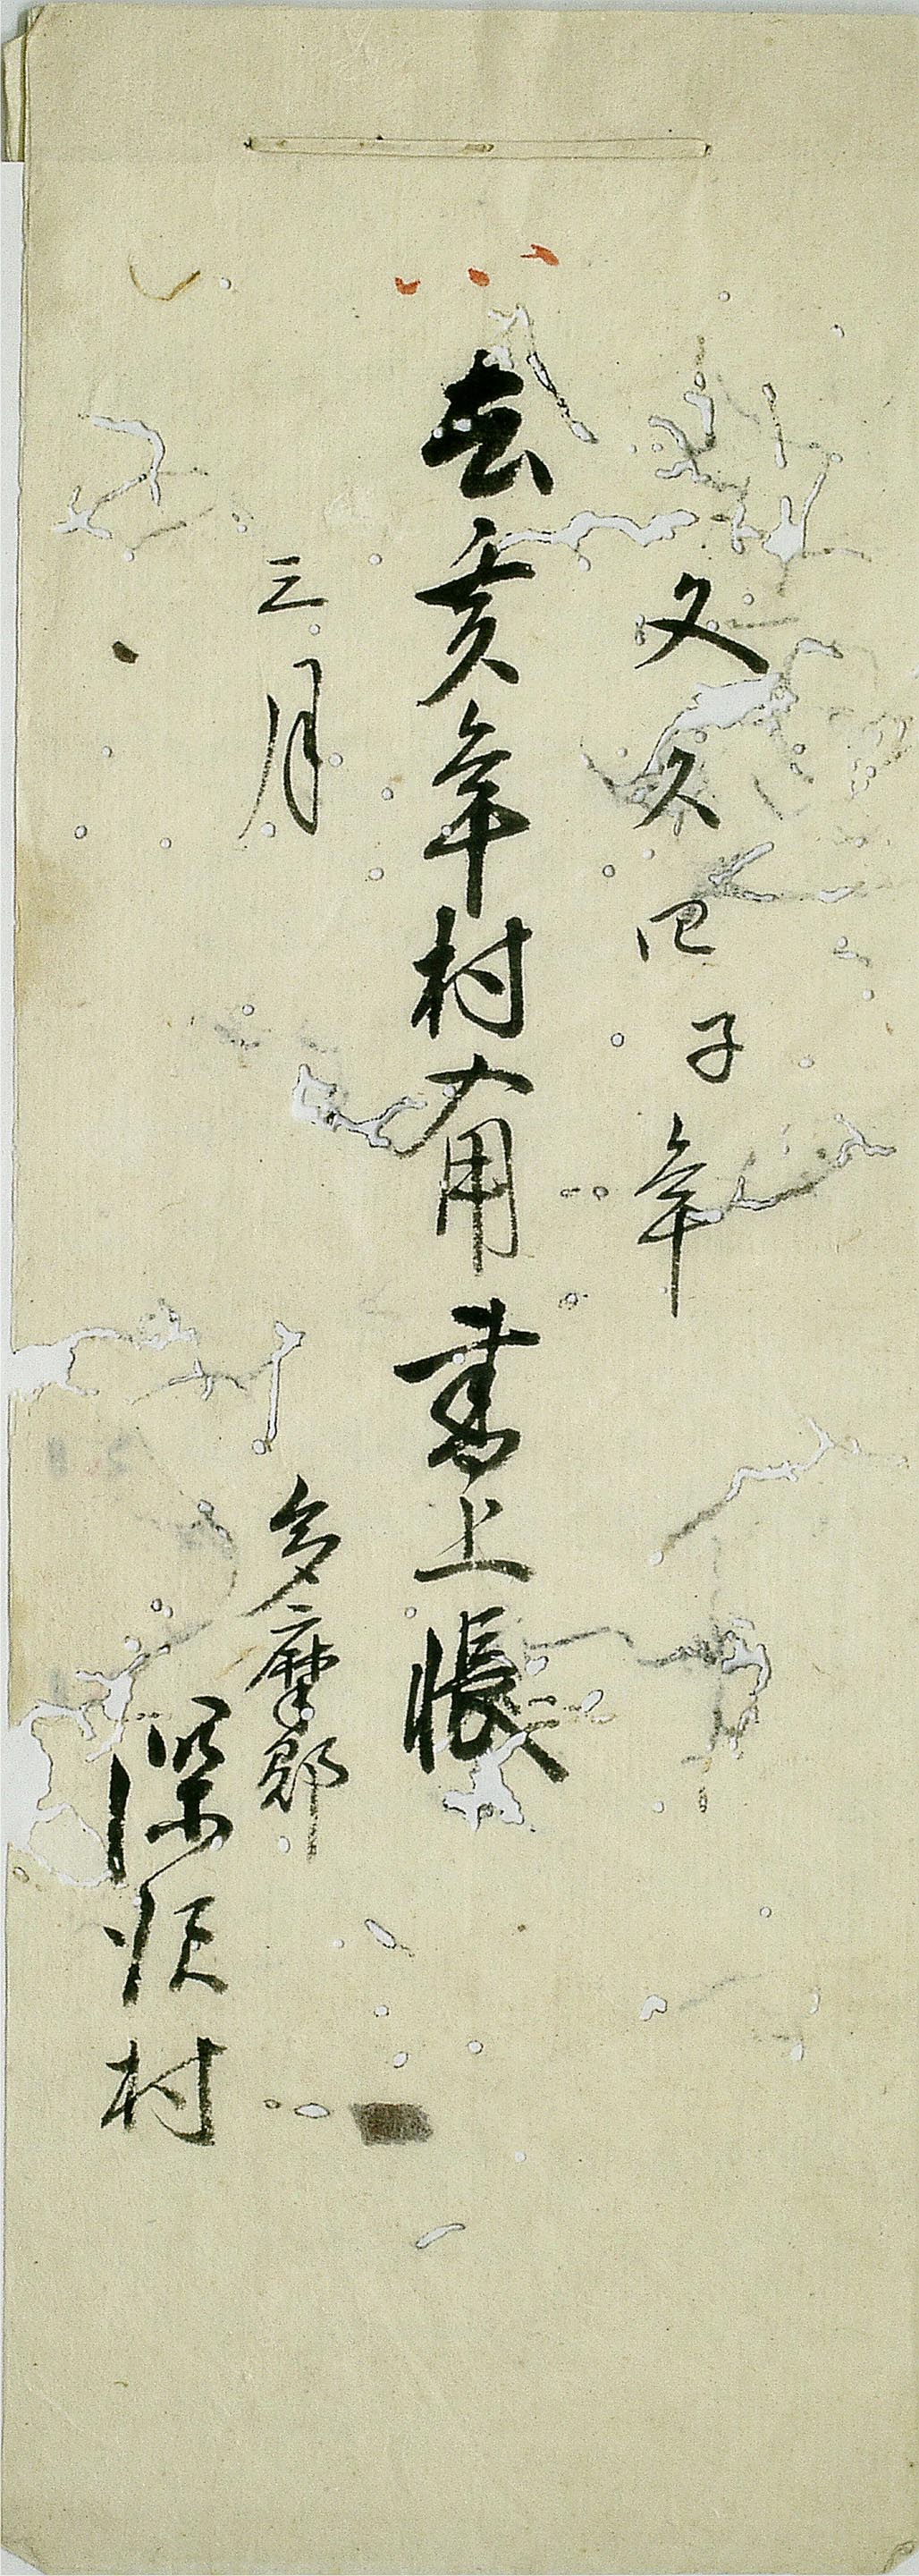 文久四子年
去亥年村入用書上帳
三月
多摩郡
深大村